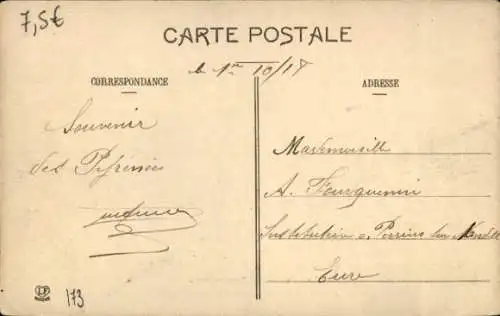 7,5€
CARTE POSTALE
le 1er 10/18
CORRESPONDANCE
ADRESSE
Souvenir
des Pyrénées
Mademoiselle
A. Fourquemin
Institutrice a Perriers sur Andelle
Eure
173